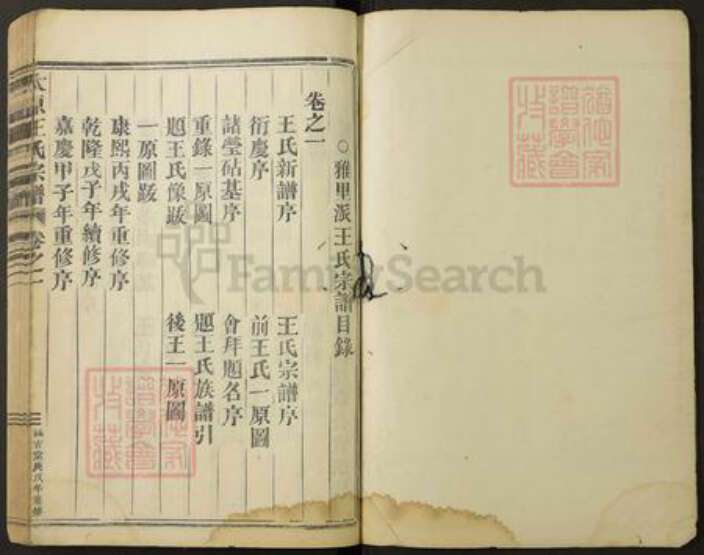 ○雅里派王氏宗譜目錄
卷之一
王氏新譜序　王氏宗譜序
衍慶序　前王氏一原圖
諸塋砧基序　會拜題名序
重錄一原圖　題王氏族譜引
題王氏像跋　後王一原圖
一原圖跋
康熙丙戌年重修序
乾隆戊子年續修序
嘉慶甲子年重修序
太原王氏宗譜　卷之一
FamilySearch